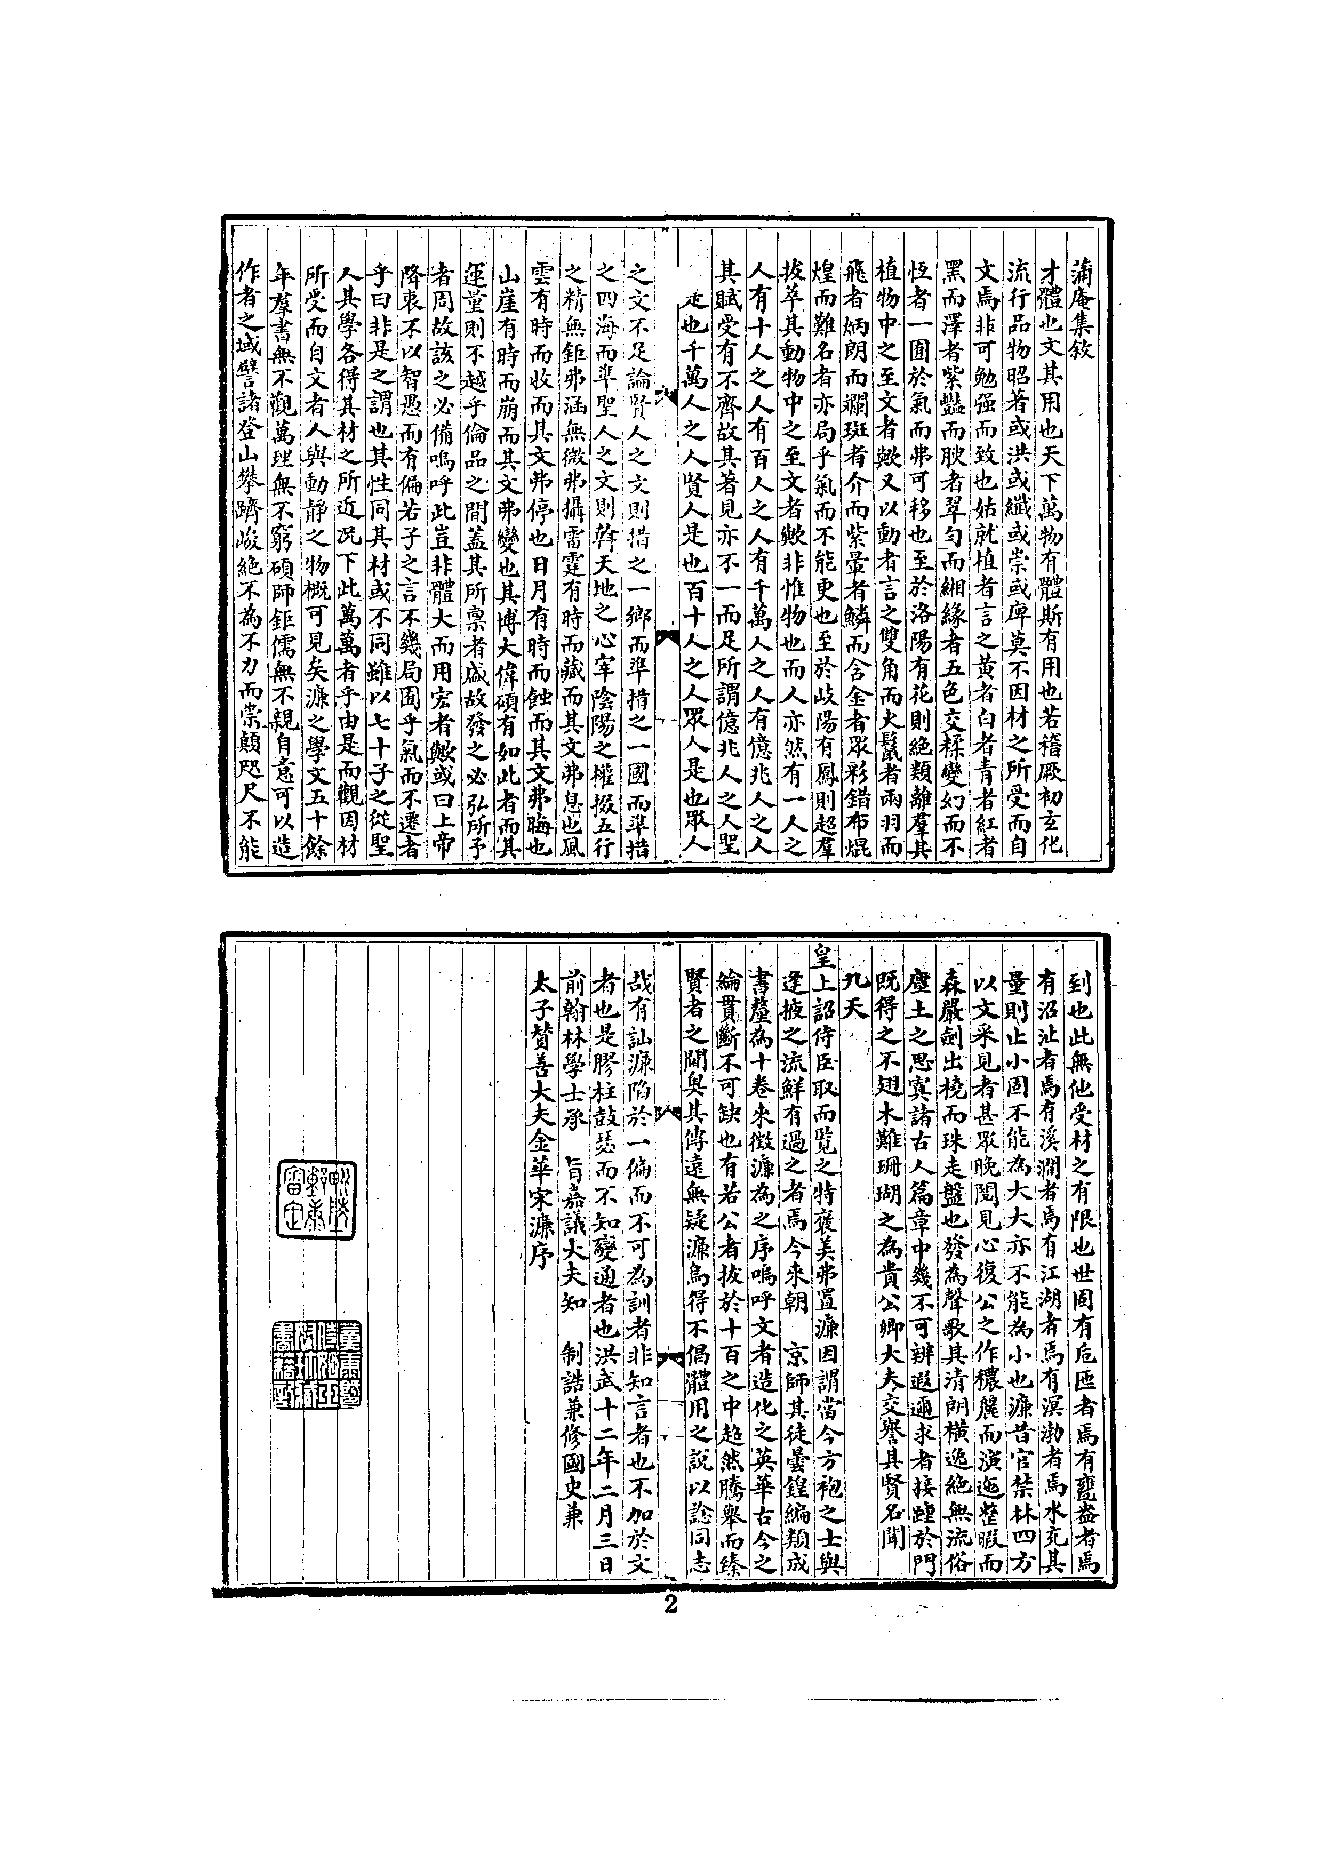 蒲庵集敘
才體也文其用也天下萬物有體斯有用也若稽厥初玄化
流行品物昭著或洪或纖或崇或庳莫不因材之所受而自
文焉非可勉强而致也姑就植者言之黄者白者青者紅者
黑而澤者紫豔而腴者翠勻而緗緣者五色交糅變幻而不
恆者一囿於氣而弗可移也至於洛陽有花則絶類離羣其
植物中之至文者歟又以動者言之雙角而火鬣者兩羽而
飛者炳朗而斕斑者介而紫暈者鱗而含金者眾彩錯布焜
煌而難名者亦局乎氣而不能更也至於岐陽有鳳則超羣
拔萃其動物中之至文者歟非惟物也而人亦然有一人之
人有十人之人有百人之人有千萬人之人有億兆人之人
其賦受有不齊故其著見亦不一而足所謂億兆人之人聖
是也千萬人之人賢人是也百十人之人眾人是也眾人
之文不足論賢人之文則措之一鄉而準措之一國而準措
之四海而準聖人之文則斡天地之心宰陰陽之權掇五行
之精無鉅弗涵無微弗攝雷霆有時而藏而其文弗息也風
雲有時而收而其文弗停也日月有時而蝕而其文弗晦也
山崖有時而崩而其文弗變也其博大偉碩有如此者而其
運量則不越乎倫品之間蓋其所禀者盛故發之必弘所予
者周故該之必備嗚呼此豈非體大而用宏者歟或曰上帝
降衷不以智愚而有偏若子之言不幾局囿乎氣而不遷者
乎曰非是之謂也其性同其材或不同雖以七十子之從聖
人其學各得其材之所近况下此萬萬者乎由是而觀因材
所受而自文者人與動靜之物概可見矣濂之學文五十餘
年羣書無不觀萬理無不窮碩師鉅儒無不親自意可以造
作者之域譬諸登山攀躋峻絶不為不力而崇顛咫尺不能
到也此無他受材之有限也世固有卮匜者焉有甕盎者焉
有沼沚者焉有溪澗者焉有江湖者焉有溟渤者焉水充其
量則止小固不能為大大亦不能為小也濂昔官禁林四方
以文采見者甚眾晚閱見心復公之作穠麗而演迤整暇而
森嚴劍出橈而珠走盤也發為聲歌其清朗横逸絶無流俗
塵土之思寘諸古人篇章中幾不可辨遐邇求者接踵於門
既得之不翅木難珊瑚之為貴公卿大夫交譽其賢名聞
九天
皇上詔侍臣取而覧之特褒美弗置濂因謂當今方袍之士與
逢掖之流鮮有過之者焉今來朝　京師其徒曇鍠編類成
書釐為十卷來徵濂為之序嗚呼文者造化之英華古今之
綸貫斷不可缺也有若公者拔於十百之中超然騰舉而臻
賢者之閫奥其傳遠無疑濂烏得不倡體用之說以諗同志
哉有訕濂陷於一偏而不可為訓者非知言者也不加於文
者也是膠柱鼓瑟而不知變通者也洪武十二年二月三日
前翰林學士承　旨嘉議大夫知　制誥兼修國史兼
太子贊善大夫金華宋濂序
2